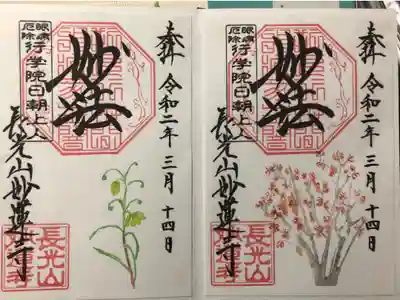 奉拝 令和二年三月十四日
妙法
眼病
厄除
行学院日朝上人
長光山妙蓮寺
長光山
奉拝 令和二年三月十四日
妙法
眼病
厄除
行学院日朝上人
長光山妙蓮寺
長光山